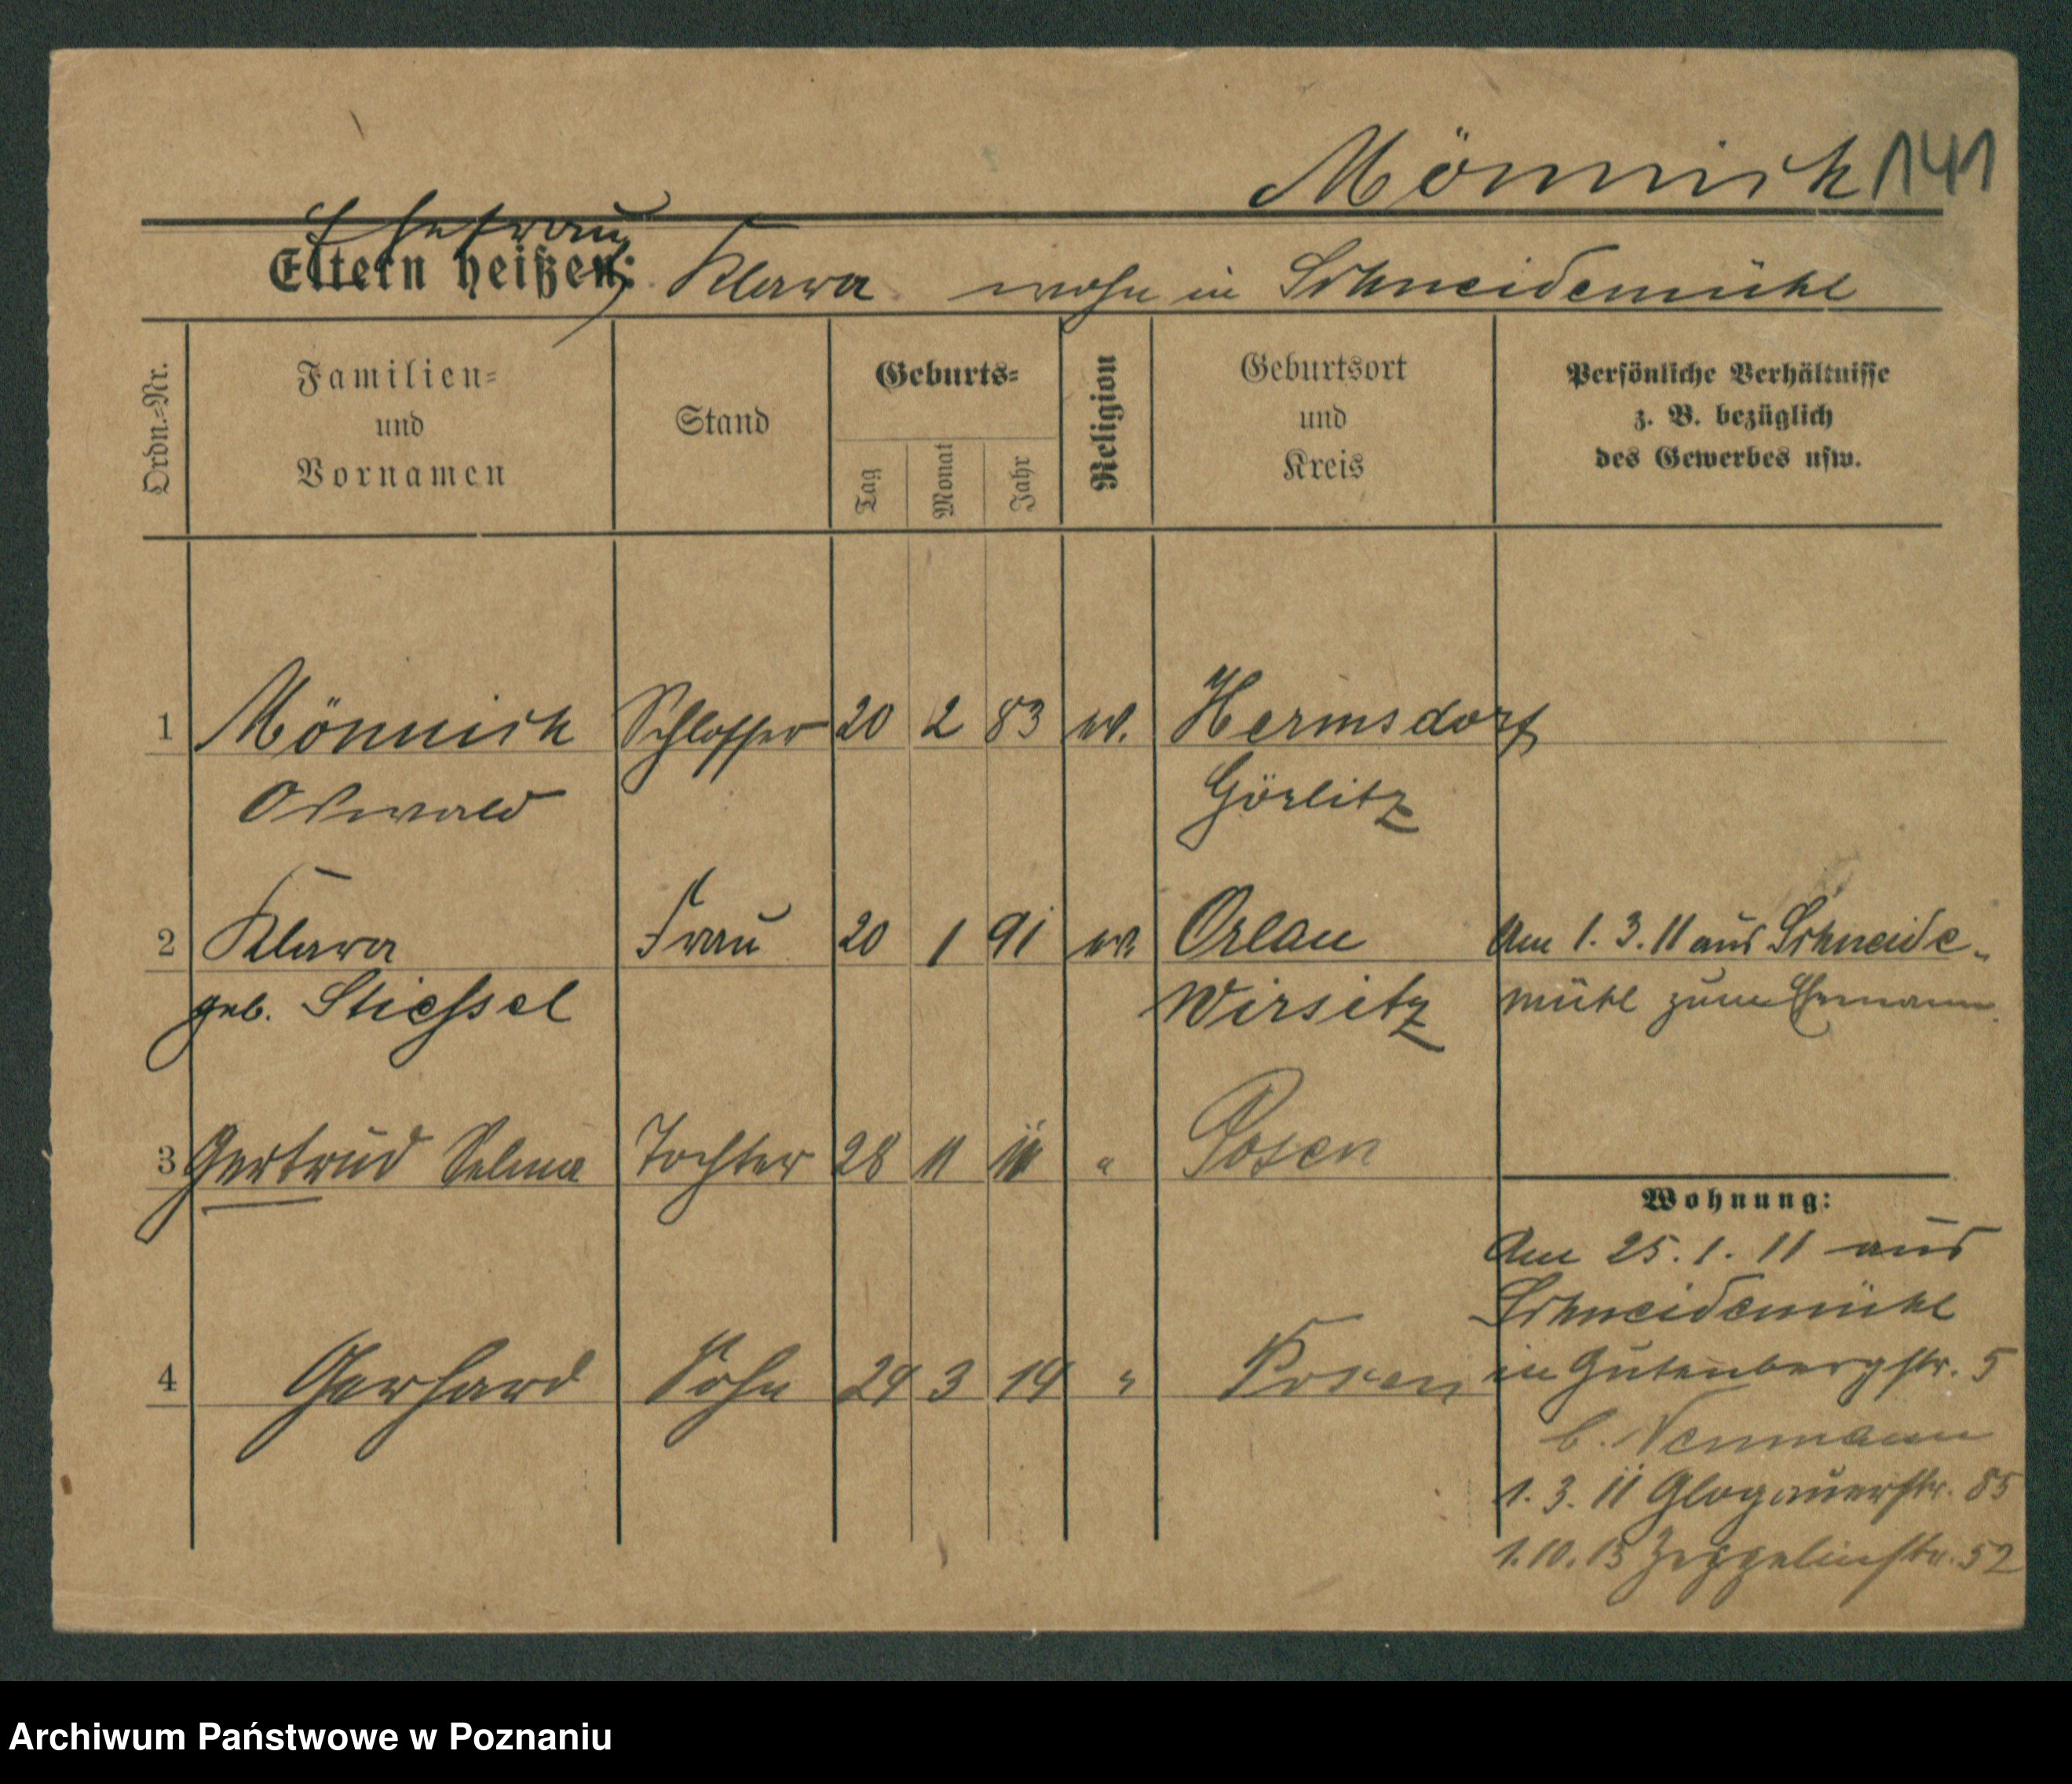 Mönnich 141
Ehefrau
Eltern heißen: Klara wohn in Schneidemühl
Ordn.=Nr.
Familien=
und
Vornamen
Stand
Geburts=
Tag
Monat
Jahr
Religion
Geburtsort
und
Kreis
Persönliche Verhältnisse
z. B. bezüglich
des Gewerbes usw.
1 Mönnich Schlosser 20 2 83 ev. Hermsdorf
Oswald Görlitz
2 Klara Frau 20 1 91 ev. Orlau Am 1. 3. 11 aus Schneide-
geb. Stiessel Wirsitz mühl zum Ehemann.
3 Gertrud Selma Tochter 28 11 11 " Posen
Wohnung:
Am 25. 1. 11 aus
Schneidemühl
4 Gerhard Sohn 24 3 14 " Posen in Gutenbergstr. 5
b. Neumann
1. 3. 11 Glogauerstr. 85
1. 10. 13 Zeppelinstr. 52
Archiwum Państwowe w Poznaniu